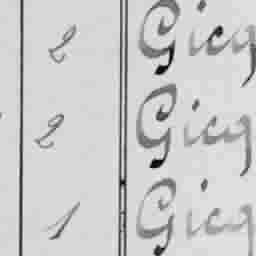 2 Gicq
2 Gicq
1 Gicq